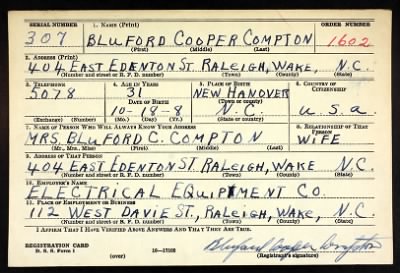 SERIAL NUMBER 1. NAME (Print) ORDER NUMBER
307 BLUFORD COOPER COMPTON 1602
(First) (Middle) (Last)
2. ADDRESS (Print)
404 EAST EDENTON ST. RALEIGH, WAKE, N.C.
(Number and street or R. F. D. number) (Town) (County) (State)
3. TELEPHONE 4. AGE IN YEARS 5. PLACE OF BIRTH 6. COUNTRY OF CITIZENSHIP
5078 31 NEW HANOVER
DATE OF BIRTH (Town or county)
10-18-8 N.C. U.S.A.
(Exchange) (Number) (Mo.) (Day) (Yr.) (State or country)
7. NAME OF PERSON WHO WILL ALWAYS KNOW YOUR ADDRESS 8. RELATIONSHIP OF THAT PERSON
MRS. BLUFORD C. COMPTON WIFE
(Mr., Mrs., Miss) (First) (Middle) (Last)
9. ADDRESS OF THAT PERSON
404 EAST EDENTON ST. RALEIGH, WAKE N.C.
(Number and street or R. F. D. number) (Town) (County) (State)
10. EMPLOYER'S NAME
ELECTRICAL EQUIPMENT CO.
11. PLACE OF EMPLOYMENT OR BUSINESS
112 WEST DAVIE ST., RALEIGH, WAKE, N.C.
(Number and street or R. F. D. number) (Town) (County) (State)
I AFFIRM THAT I HAVE VERIFIED ABOVE ANSWERS AND THAT THEY ARE TRUE.
REGISTRATION CARD
D. S. S. Form 1 (over) (Registrant's signature)